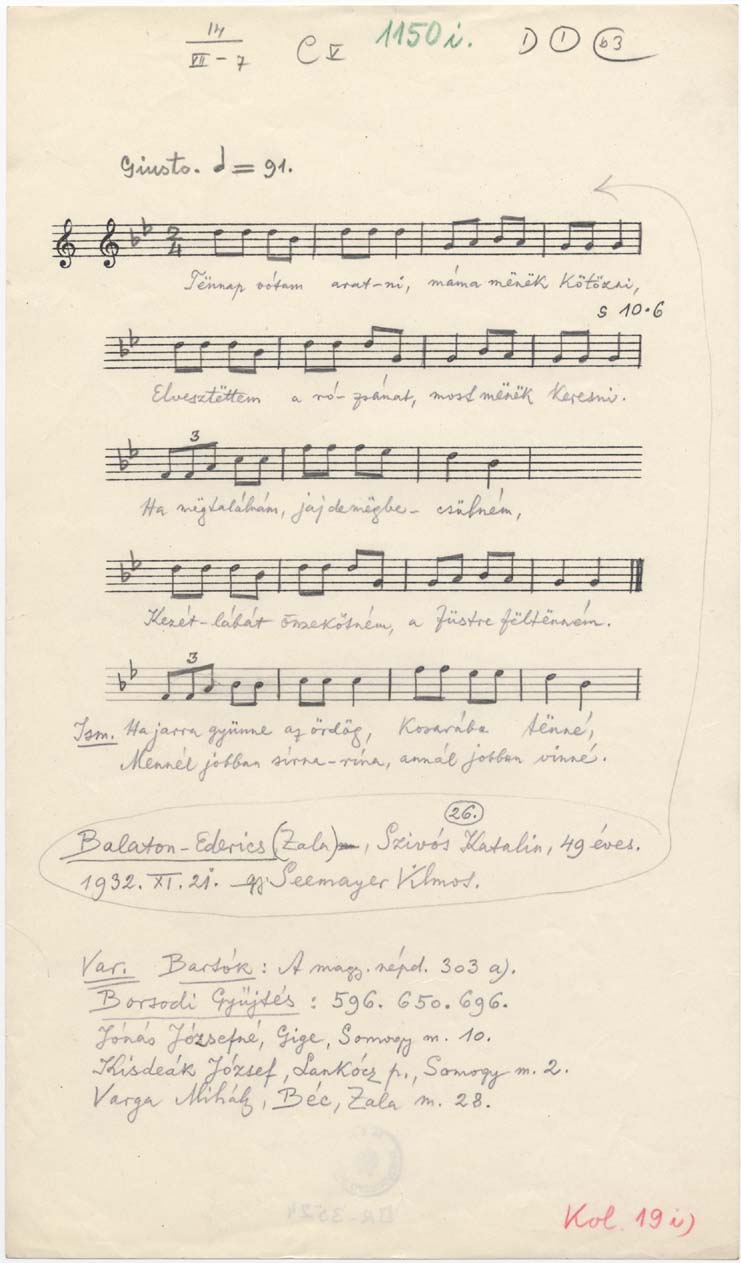 14
VII - 7
C V
1150 i.
D 1 b3
Giusto. = 91.
2
4
Tënnap vótam arat-ni, máma mënëk kötözni,
s 10·6
Elvesztëttem a ró-zsámat, most mënëk keresni.
3
Ha mëgtalálnám, jaj de mëgbe- csülném,
Kezét-lábát összekötném, a füstre föltënném.
3
Ism. Ha jarra gyünne az ördög, kosarába tënné,
Mennél jobban sírna-rína, annál jobban vinné.
Balaton-Ederics (Zala), Szivós Katalin, 49 éves.
26.
1932. XI. 21. gy. Seemayer Vilmos.
Var. Bartók: A magy. népd. 303 a).
Borsodi Gyüjtés: 596. 650. 696.
Jónás Józsefné, Gige, Somogy m. 10.
Kisdeák József, Lankócz p., Somogy m. 2.
Varga Mihály, Béc, Zala m. 28.
Kol. 19 i)